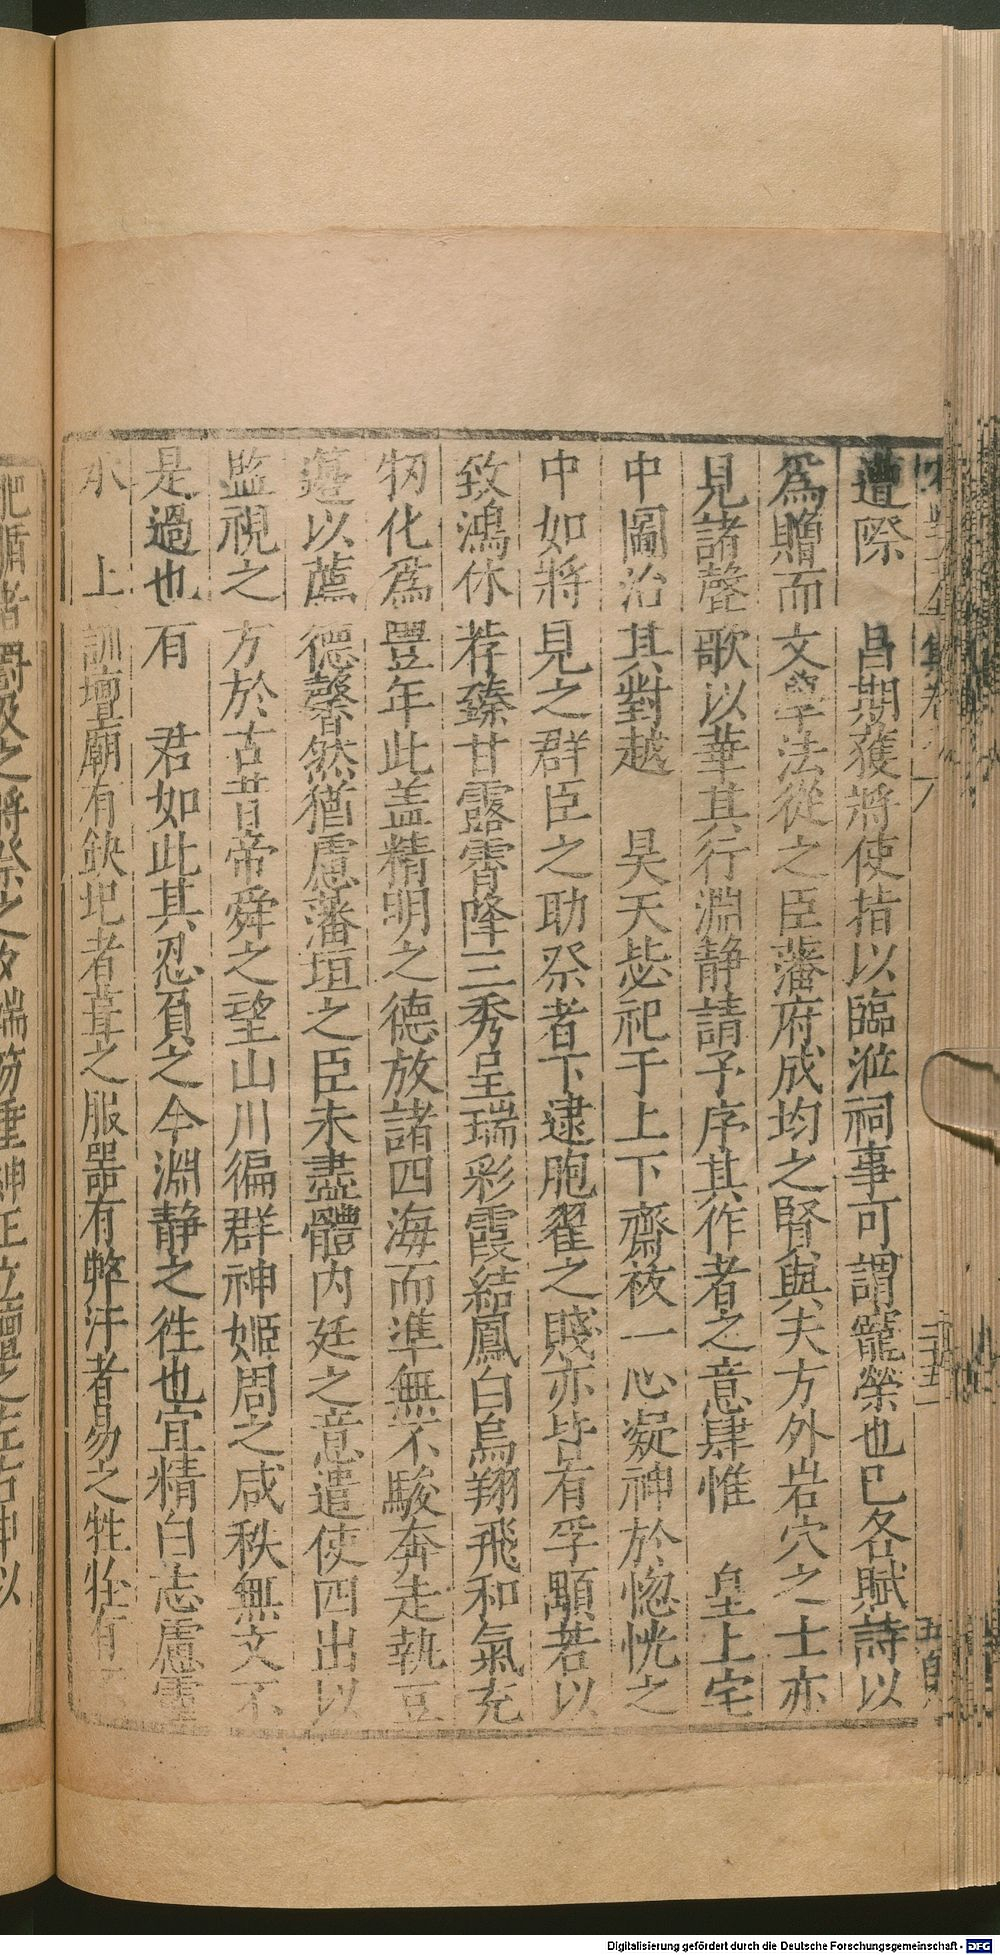 遭際　昌期獲將使指以臨涖祠事可謂寵榮也巳各賦詩以
爲贈而文學法從之臣藩府成均之賢與夫方外岩穴之士亦
見諸聲歌以華其行淵静請予序其作者之意肆惟　皇上宅
中圖治其對越　昊天毖祀于上下齋祓一心凝神於惚恍之
中如將見之群臣之助祭者下逮胞翟之賤亦皆有孚顒若以
致鴻休荐臻甘露霄降三秀呈瑞彩霞結鳳白烏翔飛和氣充
牣化爲豐年此盖精明之德放諸四海而準無不駿奔走執豆
籩以薦德馨然猶慮藩垣之臣未盡體内廷之意遣使四出以
監視之方於古昔帝舜之望山川徧群神姬周之咸秩無文不
是過也有　君如此其忍負之今淵静之徃也宜精白志慮靈
承　上訓壇廟有缺圯者葺之服器有弊汙者易之牲牷有
肥腯者
將祭之
端笏垂紳正立壇
Digitalisierung gefördert durch die Deutsche Forschungsgemeinschaft - DFG